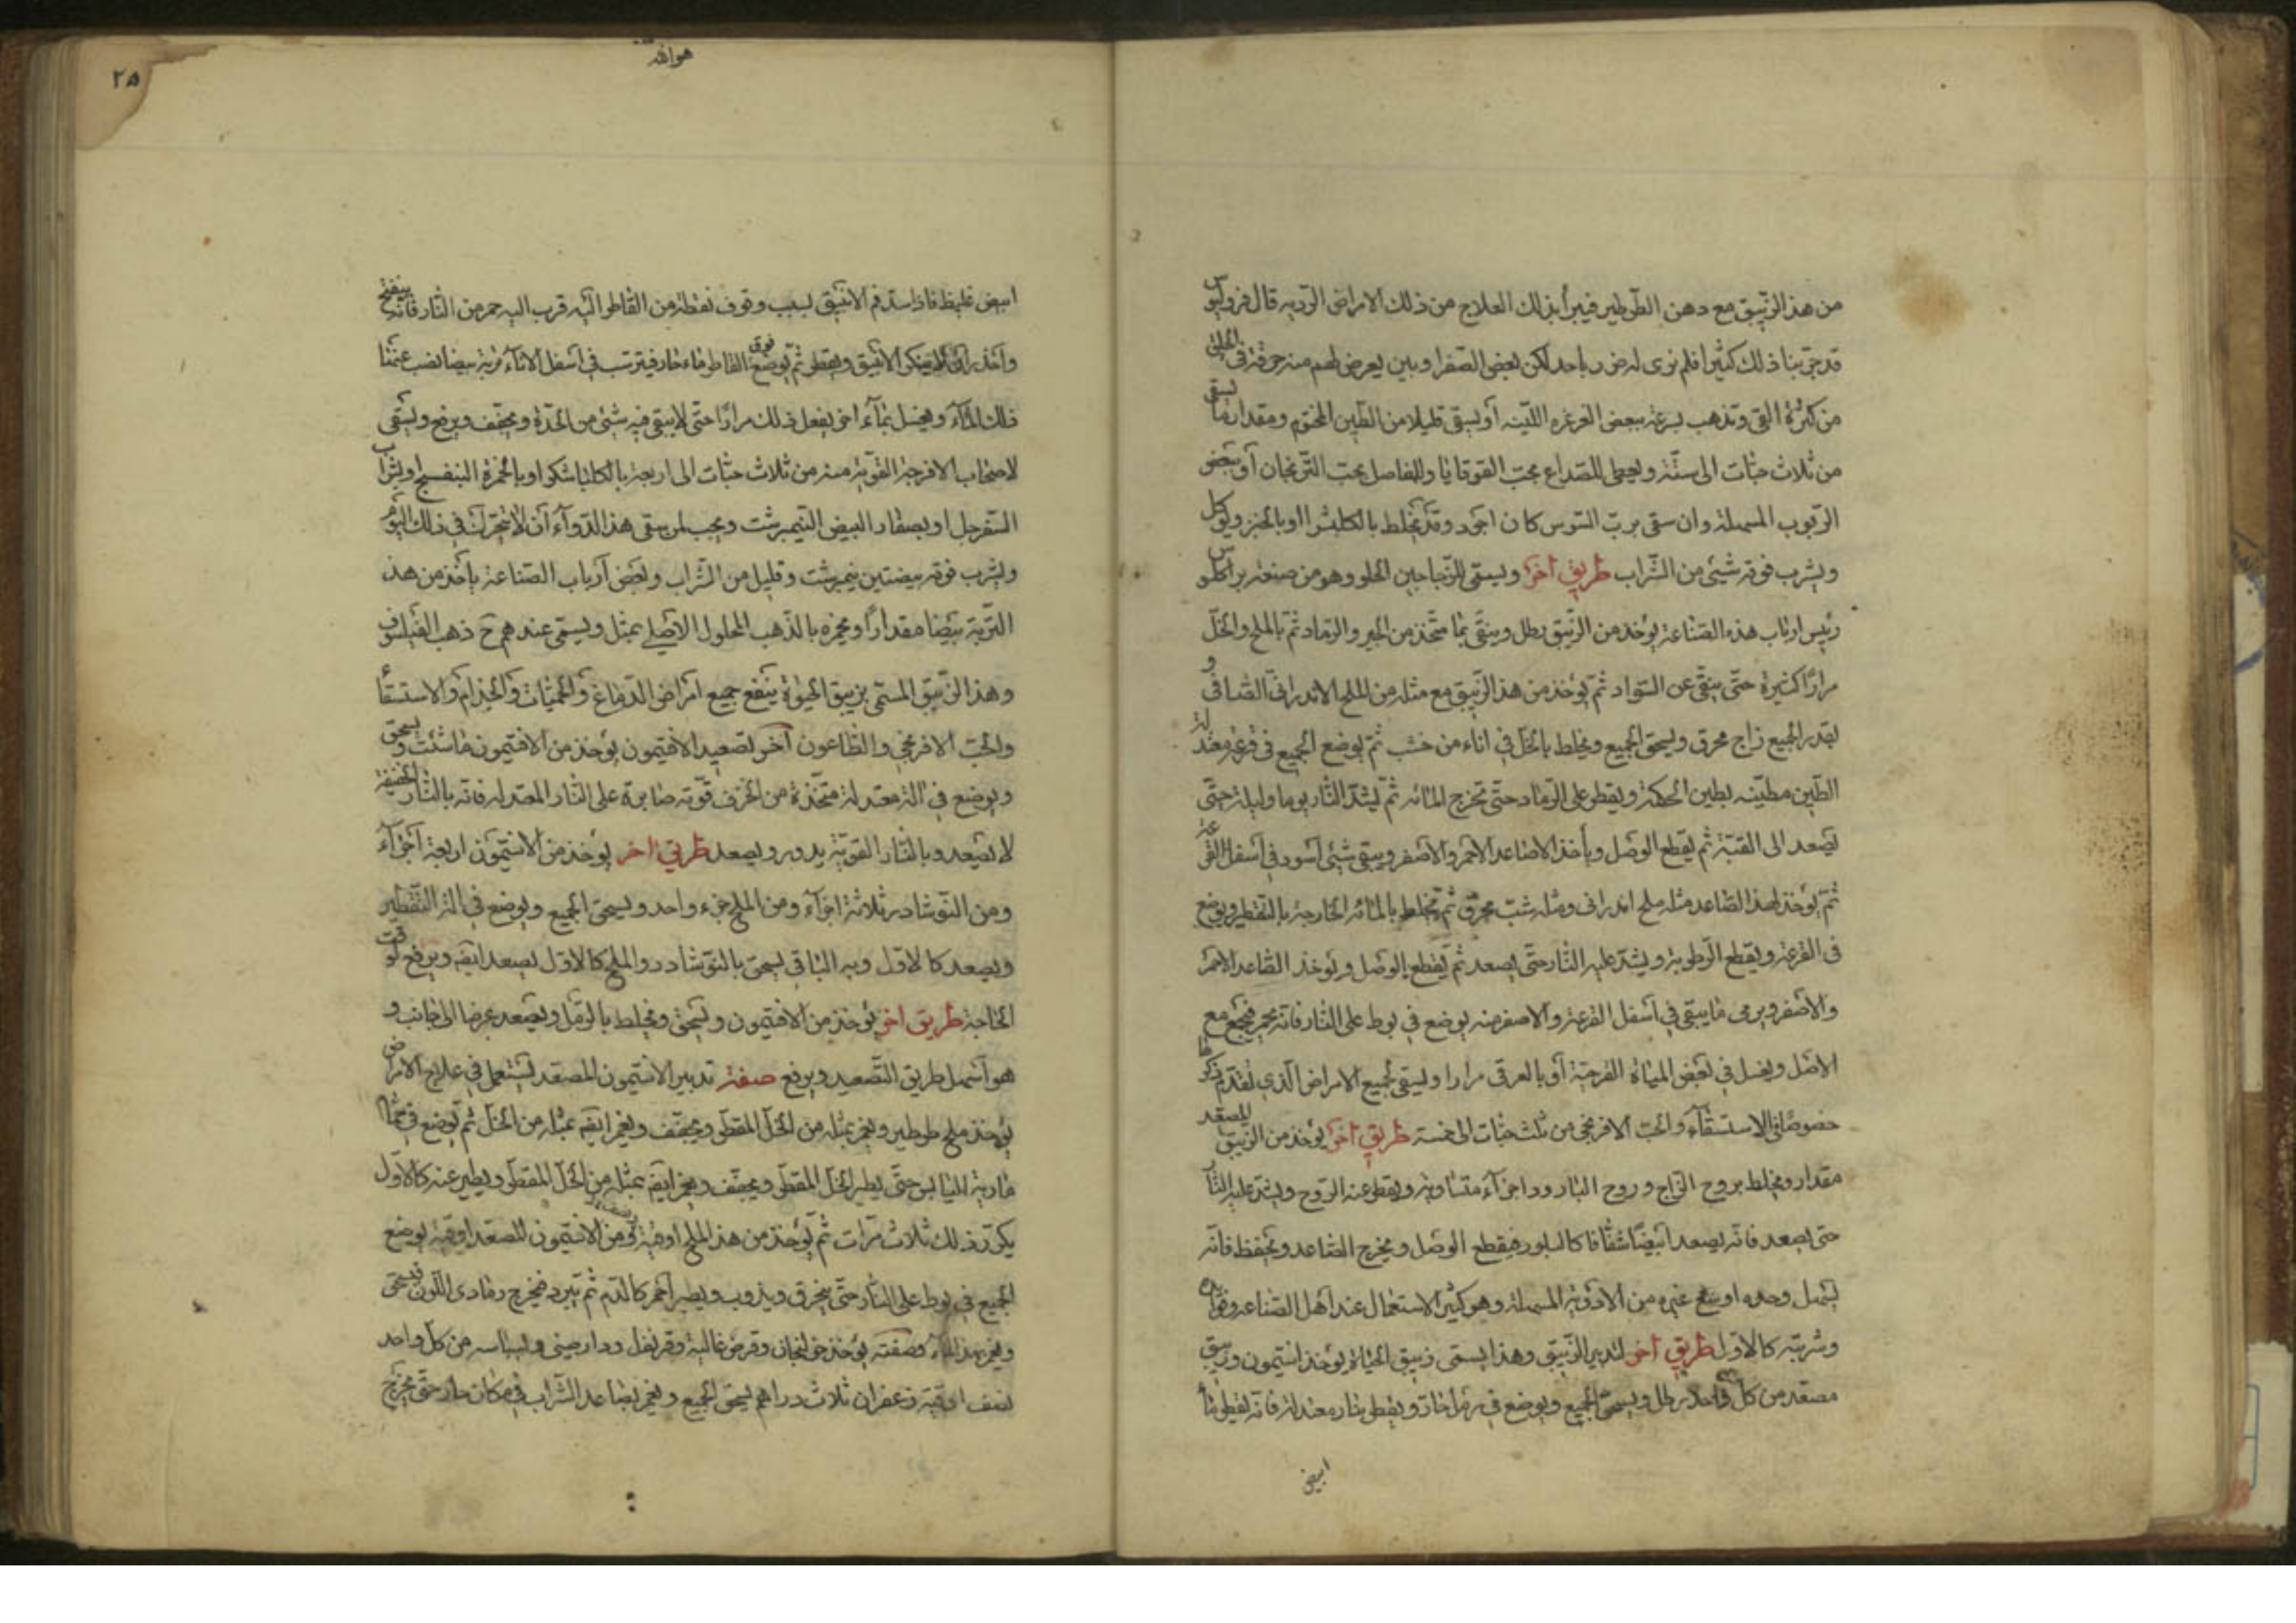 من هذا الزيبق مع دهن الطرطير فيبرأ بذلك العلاج من ذلك الامراض الرديه قال قرولیوس
قد جربنا ذلك كثيرا فلم نرى له ضررا باحد لكن بعض الصفراويين يعرض لهم منه حرقة في الحلق
من كثرة القى وتذهب بسرعة ببعض الغرغره اللينه أو يسقى قليلا من الطين المختوم ومقدار ما يسقى
من ثلاث حبات الى ستة ويعطى للصداع بحب القوقايا وللمفاصل بحب الترنجان أو ببعض
الربوب المسهلة وان سقى برب السوس كان اجود وقد يخلط بالكلشرا او بالخبز ويؤكل
ويشرب فوقه شيئ من الشراب طريق آخر ويسمى الزجاجين الحلو وهو من صنعة براكلسوس
رئيس ارباب هذه الصناعة يؤخذ من الزيبق رطل وينقى بما متخذ من الجير والرماد ثم بالملح والخل
مرارا كثيرة حتى ينقى عن السواد ثم يؤخذ من هذا الزيبق مع مثله من الملح الاندرانى الصافى و
بقدر الجميع زاج محرق ويسحق الجميع ويخلط بالخل في اناء من خشب ثم يوضع الجميع في قرعة معتدلة
الطين مطينه بطين الحكمة ويقطر على الرماد حتى تخرج المائه ثم يشد النار يوما وليلة حتى
يصعد الى القبة ثم يقطع الوصل ويأخذ الاصاعد الاحمر والاصفر ويبقى شيئ أسود في أسفل القرعة
ثم يؤخذ لهذا الصاعد مثله ملح اندرانى ومثله شب محرق ثم يخلط بالمائه الخارجة بالتقطير ويوضع
في القرعة ويقطع الرطوبة ويشد عليه النار حتى يصعد ثم يقطع الوصل ويؤخذ الصاعد الاحمر
والاصفر ويرمى ما يبقى في أسفل القرعة والاصفر منه يوضع في بوط على النار فانه يحمر فيجمع مع
الاصل ويغسل في بعض المياه الفرحية أو بالعرقى مرارا ويسقى لجميع الامراض الذي تقدم ذكرها
خصوصا في الاستسقآء والحب الافرنجى من ثلث حبات الى خمسة طريق آخر يؤخذ من الزيبق المصعد
مقدار ويخلط بروح الزاج وروح البارود اجزآء متساويه ويقطر عنه الروح ويشد عليه النار
حتى يصعد فانه يصعد أبيضا شفافا كالبلور فيقطع الوصل ويخرج الصاعد ويحفظ فانه
يسهل وحده او مع غيره من الادويه المسهلة وهو كثير الاستعمال عند أهل الصناعه وفوائده
وشربته كالاول طريق آخر لتدبير الزيبق وهذا يسمى زيبق الحياة يؤخذ انتيمون وزيبق
مصعد من كل واحد رطل ويسحق الجميع ويوضع في رمل حار ويقطر بنار معتدلة فانه يقطر ماء
ابيض
٢٥
هو الله
ابيض غليظ فاذا استد فم الانبيق لسبب وقوف نقطة من القاطر اليه قرب اليه جمر من النار فانه ينفتح
واحذر ان لا ينكسر الانبيق ويقطر ثم يوضع فوق القاطر ماء حار فيترسب في أسفل الاناء تربة بيضا يصب عنها
ذلك المآء ويغسل بمآء اخر يفعل ذلك مرارا حتى لا يبقى فيه شيئ من الحدة ويجفف ويرفع ويسقى
لاصحاب الافرجة القوية منه من ثلاث حبات الى اربعة بالكلباشكر او بالخمرة البنفسج او بشراب
السفرجل او بصفار البيض النيمبرشت ويجب لمن سقى هذا الدوآء أن لا يتحرك في ذلك اليوم
ويشرب فوقه بيضتين نيمبرشت وقليل من الشراب وبعض أرباب الصناعة يأخذ من هذه
التربة بيضا مقدارا ويخمره بالذهب المحلول الاصلى بمثله ويسمى عندهم ح ذهب الفيلسوف
وهذا الزيبق المسمى بزيبق الحيوة ينفع جميع امراض الدماغ والحميات والجذام والاستسقاء
والحب الافرنجى والطاعون آخر لتصعيد الانتيمون يؤخذ من الانتيمون ما شئت ويسحق
ويوضع في آلة معتدلة متخذة من الخزف قوية صابرة على النار المعتدله فانه بالنار الخفيفة
لا يصعد وبالنار القوية يدور ويصعد طريق اخر يؤخذ من الانتيمون اربعة أجزآء
ومن النوشادر ثلاثة اجزآء ومن الملح جزء واحد ويسحق الجميع ويوضع في آلة التقطير
ويصعد كالاول وبه الباقى يسحق بالنوشادر والملح كالاول يصعد ايضه ويرفع لوقت
الحاجة طريق اخر يؤخذ من الانتيمون ويسحق ويخلط بالرمل ويصعد عرضا الى جانب و
هو أسهل طريق التصعيد ويرفع صفة تدبير الانتيمون المصعد ليستعمل في علاج الامراض
يؤخذ ملح طرطير ويغمر بمثله من الخل المقطر ويجفف ويغمر ايضه بمثله من الخل ثم يوضع في حمام
مارية اليابس حتى يطير الخل المقطر ويجفف ويغمر ايضه بمثله من الخل المقطر ويطير عنه كالاول
يكرر ذلك ثلاث مرات ثم يؤخذ من هذا الملح اوقية ومن الانتيمون المصعد اوقية يوضع
الجميع في بوط على النار حتى يحترق ويذوب ويصير أحمر كالدم ثم يبرد فيخرج رمادى اللون فيسحق
ويغمر بهذا المآء وصفته يؤخذ خولنجان وقرص غالية وقرنفل ودارصينى وبسباسه من كل واحد
نصف اوقية زعفران ثلاث دراهم يسحق الجميع ويغمر بصاعد الشراب في مكان حار حتى يخرج